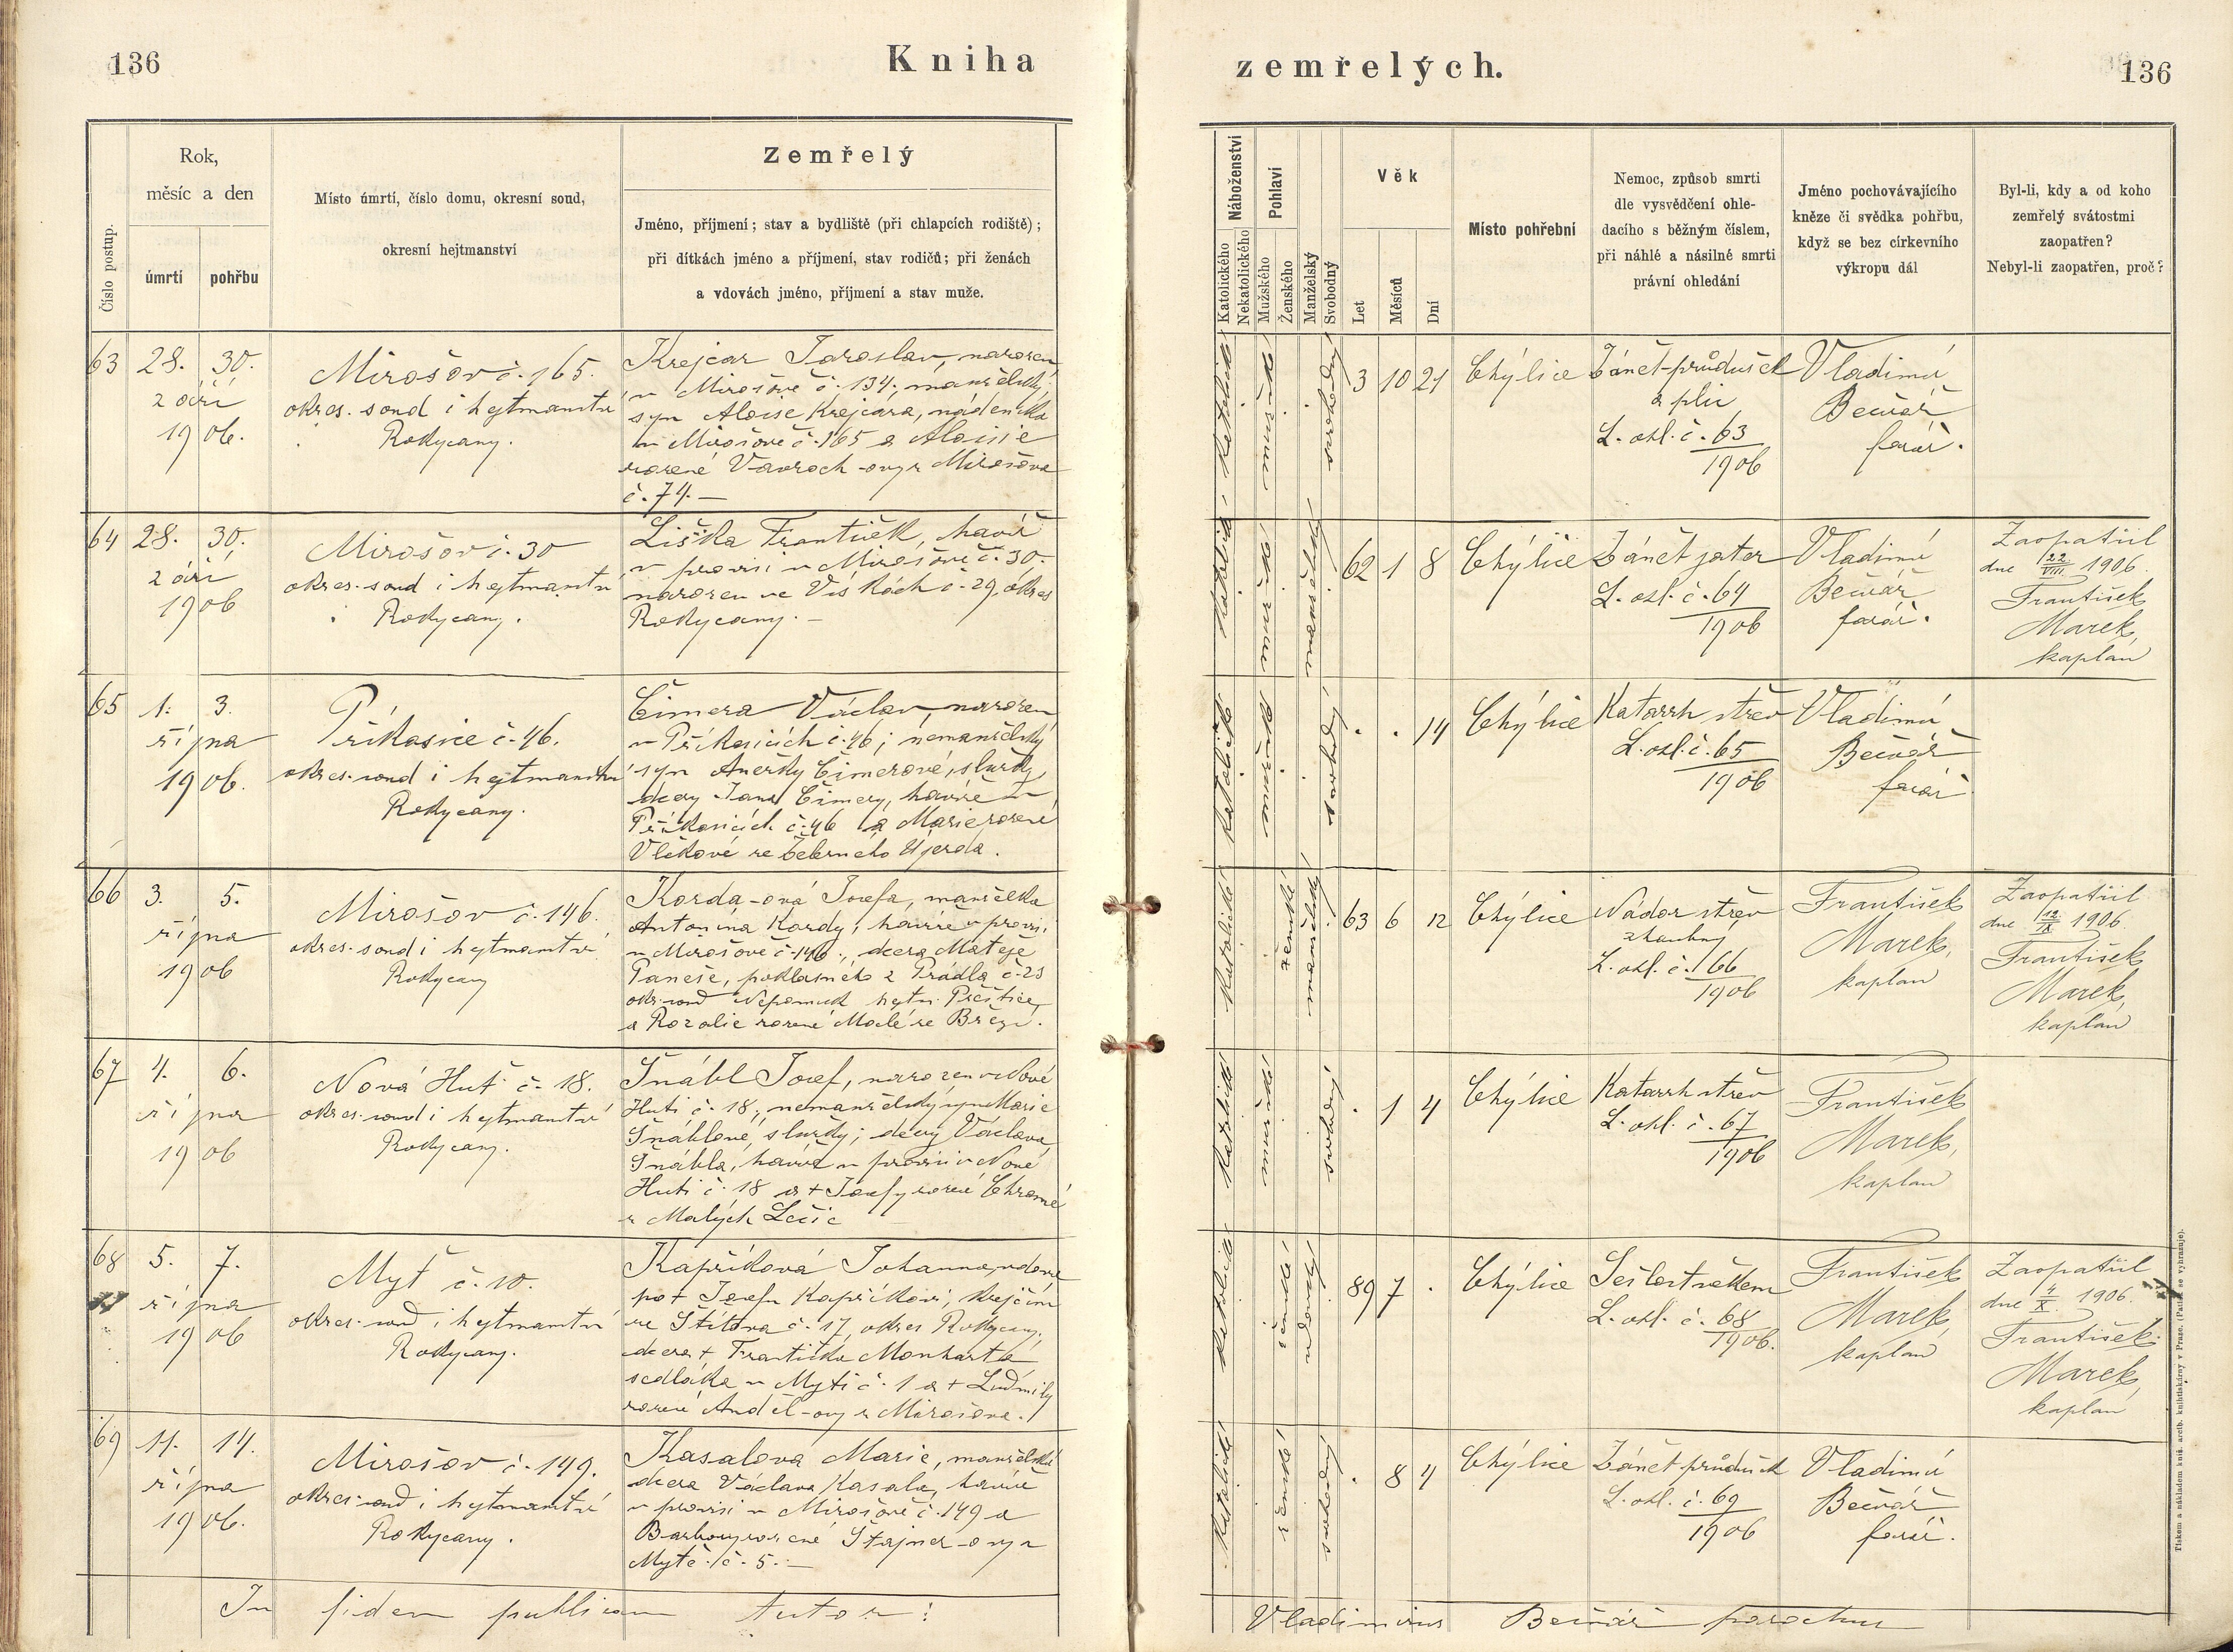 136
Kniha
zemřelých.
136
Číslo postup.
Rok,
měsíc a den
úmrtí
pohřbu
Místo úmrtí, číslo domu, okresní soud,
okresní hejtmanství
Zemřelý
Jméno, příjmení; stav a bydliště (při chlapcích rodiště);
při dítkách jméno a příjmení, stav rodičů; při ženách
a vdovách jméno, příjmení a stav muže.
Náboženství
Katolického
Nekatolického
Pohlaví
Mužského
Ženského
Manželský
Svobodný
Věk
Let
Měsíců
Dní
Místo pohřební
Nemoc, způsob smrti
dle vysvědčení ohle-
dacího s běžným číslem,
při náhlé a násilné smrti
právní ohledání
Jméno pochovávajícího
kněze či svědka pohřbu,
když se bez církevního
výkropu dál
Byl-li, kdy a od koho
zemřelý svátostmi
zaopatřen?
Nebyl-li zaopatřen, proč?
63
28. 30.
září
1906.
Mirošov č. 165.
okres. soud i hejtmanství
Rokycany.
Krejcar Jaroslav, narozen
v Mirošově č. 134; manželský
syn Aloise Krejcara, nádeníka
v Mirošově č. 165 a Aloisie
rozené Vavroch-ovy z Mirošova
č. 74. —
katolické
mužské
svobodný
3 10 21
Chýlice
Zánět průdušek
a plic
L. ohl. č. 63
1906
Vladimír
Bečvář
farář.
64
28. 30.
září
1906
Mirošov č. 30
okres. soud i hejtmanství
Rokycany.
Liška František, havíř
v provisi v Mirošově č. 30.
narozen ve Vískách č. 29, okres
Rokycany. —
katolické
mužské
manželský
62 1 8
Chýlice
Zánět jater
L. ohl. č. 64
1906
Vladimír
Bečvář
farář.
Zaopatřil
dne 22/VIII. 1906.
František
Marek,
kaplan
65
1. 3.
října
1906.
Příkosice č. 46.
okres. soud i hejtmanství
Rokycany.
Čimera Václav, narozen
v Příkosicích č. 46; nemanželský
syn Anežky Čimerové, služky,
dcery Jana Čimery, havíře v
Příkosicích č. 46 a Marie rozené
Vlčkové ze Željezného Újezda.
katolické
mužské
svobodný
. . 14
Chýlice
Katarrh střev
L. ohl. č. 65
1906
Vladimír
Bečvář
farář
66
3. 5.
října
1906
Mirošov č. 146.
okres. soud i hejtmanství
Rokycany
Korda-ová Josefa, manželka
Antonína Kordy, havíře v provisi
v Mirošově č. 146., dcera Matěje
Paneše, poklasného z Prádla č. 23
okr. soud Nepomuk hejtm. Přeštice,
a Rozalie rozené Malé ze Březí.
katolické
ženské
manželský
63 6 12
Chýlice
Nádor střev
zhoubný
L. ohl. č. 66
1906
František
Marek,
kaplan
Zaopatřil
dne 12/IX. 1906.
František
Marek,
kaplan
67
4. 6.
října
1906
Nová Huť č. 18.
okres. soud i hejtmanství
Rokycany.
Šnábl Josef, narozen v Nové
Huti č. 18., nemanželský syn Marie
Šnáblové, služky; dcery Václava
Šnábla, havíře v provisi v Nové
Huti č. 18 a + Josefy rozené Chromé
z Malých Lečic
katolické
mužské
svobodný
. 1 4
Chýlice
Katarrh střev
L. ohl. č. 67
1906
František
Marek,
kaplan
68
5. 7.
října
1906
Myť č. 10.
okres. soud i hejtmanství
Rokycany.
Kapříková Johanna, vdova
po + Josefu Kapříkovi, krejčím
ze Štítova č. 17, okres Rokycany,
dcera + Františka Monharta
sedláka v Myti č. 1 a + Ludmily
rozené Anděl-ovy z Mirošova.
katolické
ženské
vdovský
89 7 .
Chýlice
Sešlost věkem
L. ohl. č. 68
1906.
František
Marek,
kaplan
Zaopatřil
dne 4/X. 1906.
František
Marek,
kaplan
69
11. 14.
října
1906.
Mirošov č. 149.
okres. soud i hejtmanství
Rokycany.
Kasalova Marie, manželská
dcera Václava Kasala, havíře
v provisi v Mirošově č. 149 a
Barbory rozené Štajner-ovy z
Mytě č. 5. —
katolické
ženské
svobodný
. 8 4
Chýlice
Zánět průdušek
L. ohl. č. 69
1906
Vladimír
Bečvář
farář.
In fidem publicam testor:
Vladimirus Bečvář parochus
Tiskem a nákladem kníž. arcib. knihtiskárny v Praze. (Patisk se vyhrazuje).